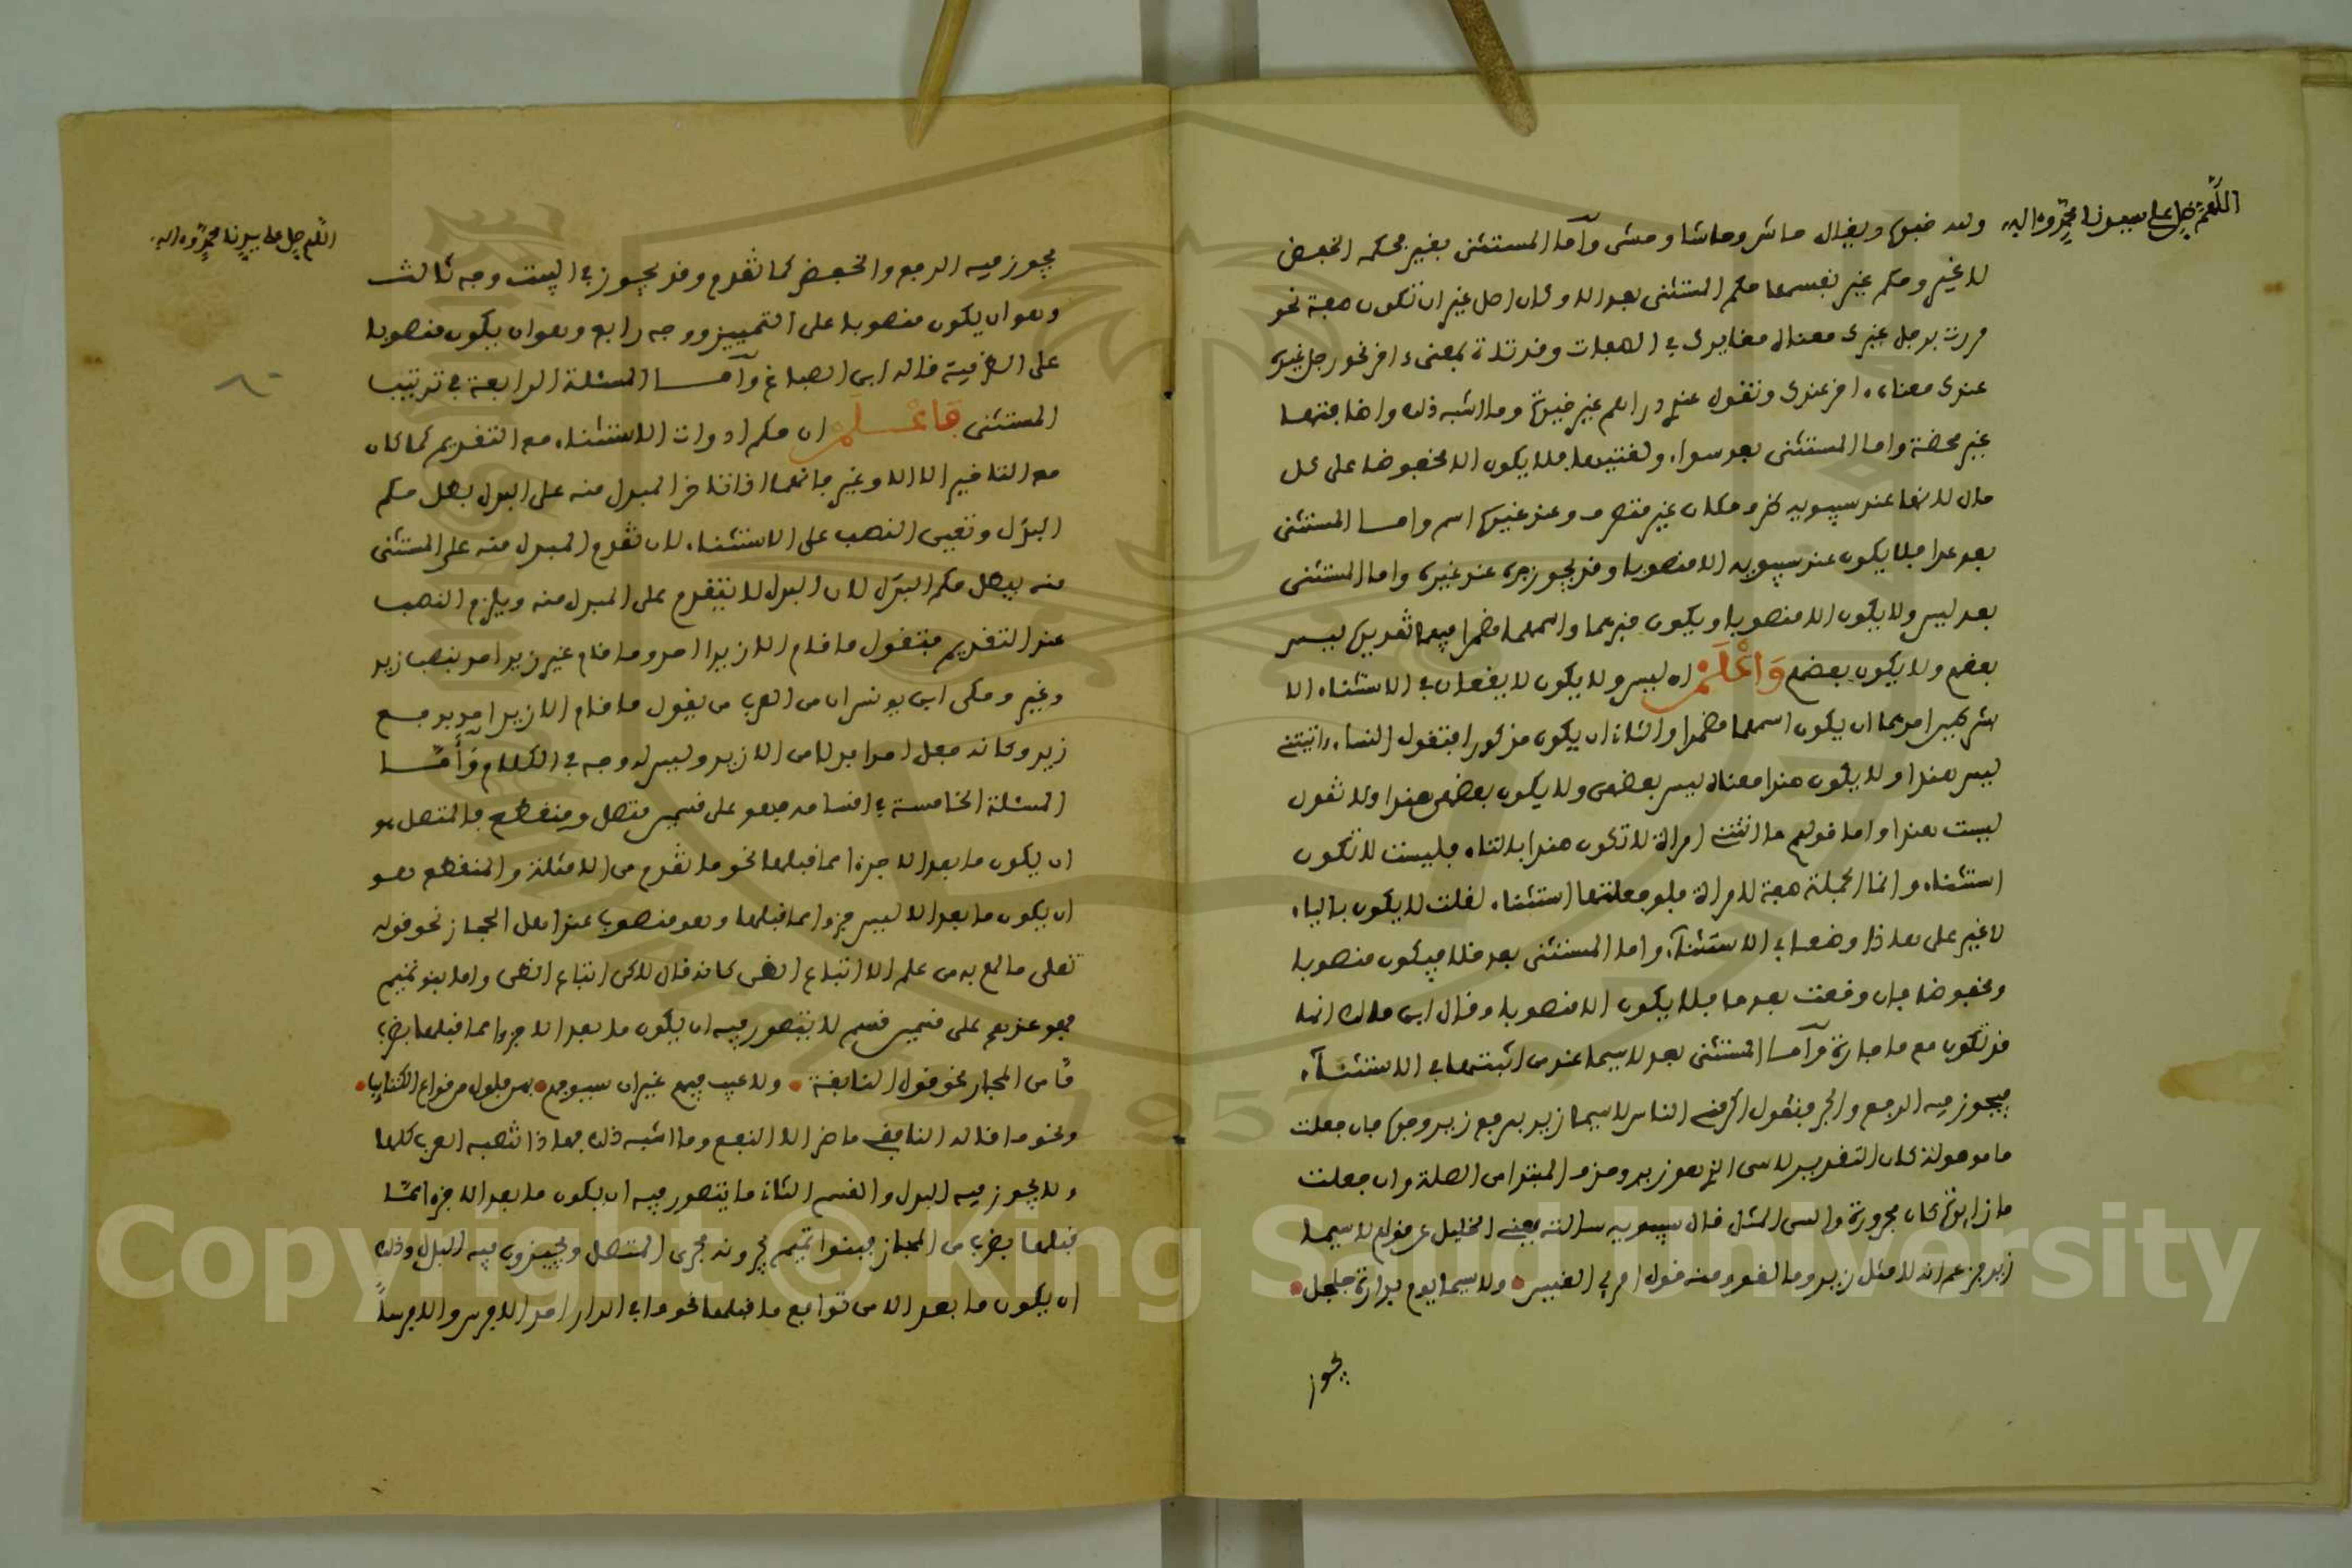 اللهم صل على سيدنا محمد وءاله
وله خبره ويقال حاشى وحاشا وحشى وأما المستثنى بغير فحكمه الخفض
لا غير وحكم غير نفسها حكم المستثنى بعد الا وكان اصل غير ان تكون صفة نحو
مررت برجل غيرك معناه مغايرك في الصفات وقد تاتي بمعنى ءاخر نحو رجل غيرك
عندى معناه ءاخر عندى وتقول عندي دراهم غير وما اشبه ذلك واضافتها
غير محضة واما المستثنى بعد سواء ولغتيها فلا يكون الا مخفوضا على كل
حال لانها عند سيبويه ظرف مكان غير متصرف وعند غيره اسم واما المستثنى
بعد عدا فلا يكون عند سيبويه الا منصوبا وقد يجوز جره عند غيره واما المستثنى
بعد ليس ولا يكون الا منصوبا ويكون خبرهما واسمهما مضمرا فيهما تقديره ليس
بعضهم ولا يكون بعضهم وَاعْلَمْ ان ليس ولا يكون لا يقعان في الاستثناء الا
بشرطين احدهما ان يكون اسمهما مضمرا والثاني ان يكون مذكورا فتقول النساء اتيتني
ليس هندا ولا يكون هندا معناه ليس بعضهن ولا يكون بعضهن هندا ولا تقول
ليست هندا واما قولهم ما اتتني امراة لا تكون هندا بالتاء فليست لا تكون
استثناء وانما الجملة صفة لامراة فلو جعلتها استثناء لقلت لا يكون بالياء
لا غير على هذا وضعها في الاستثناء واما المستثنى بعد خلا فيكون منصوبا
ومخفوضا فان وقعت بعد ما فلا يكون الا منصوبا وقال ابن مالك انها
قد تكون مع ما جارة وأما المستثنى بعد لا سيما عند من اثبتها في الاستثناء
فيجوز فيه الرفع والجر فتقول اكرمني الناس لا سيما زيد برفع زيد وجره فان جعلت
ما موصولة كان التقدير لا سي الذي هو زيد وحذف المبتدا من الصلة وان جعلت
ما زايدة كان مجرورة والسي المثل قال سيبويه سالته يعني الخليل عن قولهم لا سيما
زيد فزعم انه لا مثل زيد وما لغو ومنه قول امرئ القيس • ولا سيما يوم بدارة جلجل •
يجوز
اللهم صل على سيدنا محمد وءاله
يجوز فيه الرفع والخفض كما تقدم وقد يجوز في البيت وجه ثالث
وهو ان يكون منصوبا على التمييز ووجه رابع وهو ان يكون منصوبا
على الظرفية قاله ابن الصباغ وأمـا المسئلة الرابعة في ترتيب
المستثنى فَاعْـلَمْ ان حكم ادوات الاستثناء مع التقديم كما كان
مع التاخير الا الا وغير فانهما اذا تاخر المبدل منه على البدل بطل حكم
البدل وتعين النصب على الاستثناء لان تقدم المبدل منه على المستثنى
منه يبطل حكم البدل لان البدل لا يتقدم على المبدل منه ويلزم النصب
عند التقديم فتقول ما قام الا زيدا احد وما قام غير زيد احد بنصب زيد
وغير وحكى ابن يونس ان من العرب من يقول ما قام الا زيد احد برفع
زيد وكانه جعل احدا بدلا من الا زيد وليس له وجه في الكلام وأمـا
المسئلة الخامسة في اقسامه فهو على قسمين متصل ومنقطع فالمتصل هو
ان يكون ما بعد الا جزءا مما قبلها نحو ما تقدم من الامثلة والمنقطع هو
ان يكون ما بعد الا ليس جزءا مما قبلها وهو منصوب عند اهل الحجاز نحو قوله
تعلى ما لهم به من علم الا اتباع الظن كانه قال لاكن اتباع الظن واما بنو تميم
فهو عندهم على قسمين قسم لا يتصور فيه ان يكون ما بعد الا جزءا مما قبلها بضرب
من المجاز نحو قول النابغة • ولا عيب فيهم غير ان سيوفهم • بهن فلول من قراع الكتايب •
ونحو ما قاله ما ضر الا النفع وما اشبه ذلك فهذا تنصبه العرب كلها
ولا يجوز فيه البدل والقسم الثاني ما يتصور فيه ان يكون ما بعد الا جزءا مما
قبلها بضرب من المجاز فبنوا تميم يجرونه مجرى المتصل ويجيزون فيه البدل وذلك
ان يكون ما بعد الا من توابع ما قبلها نحو ما في الدار احد الا فرس والا فرسا